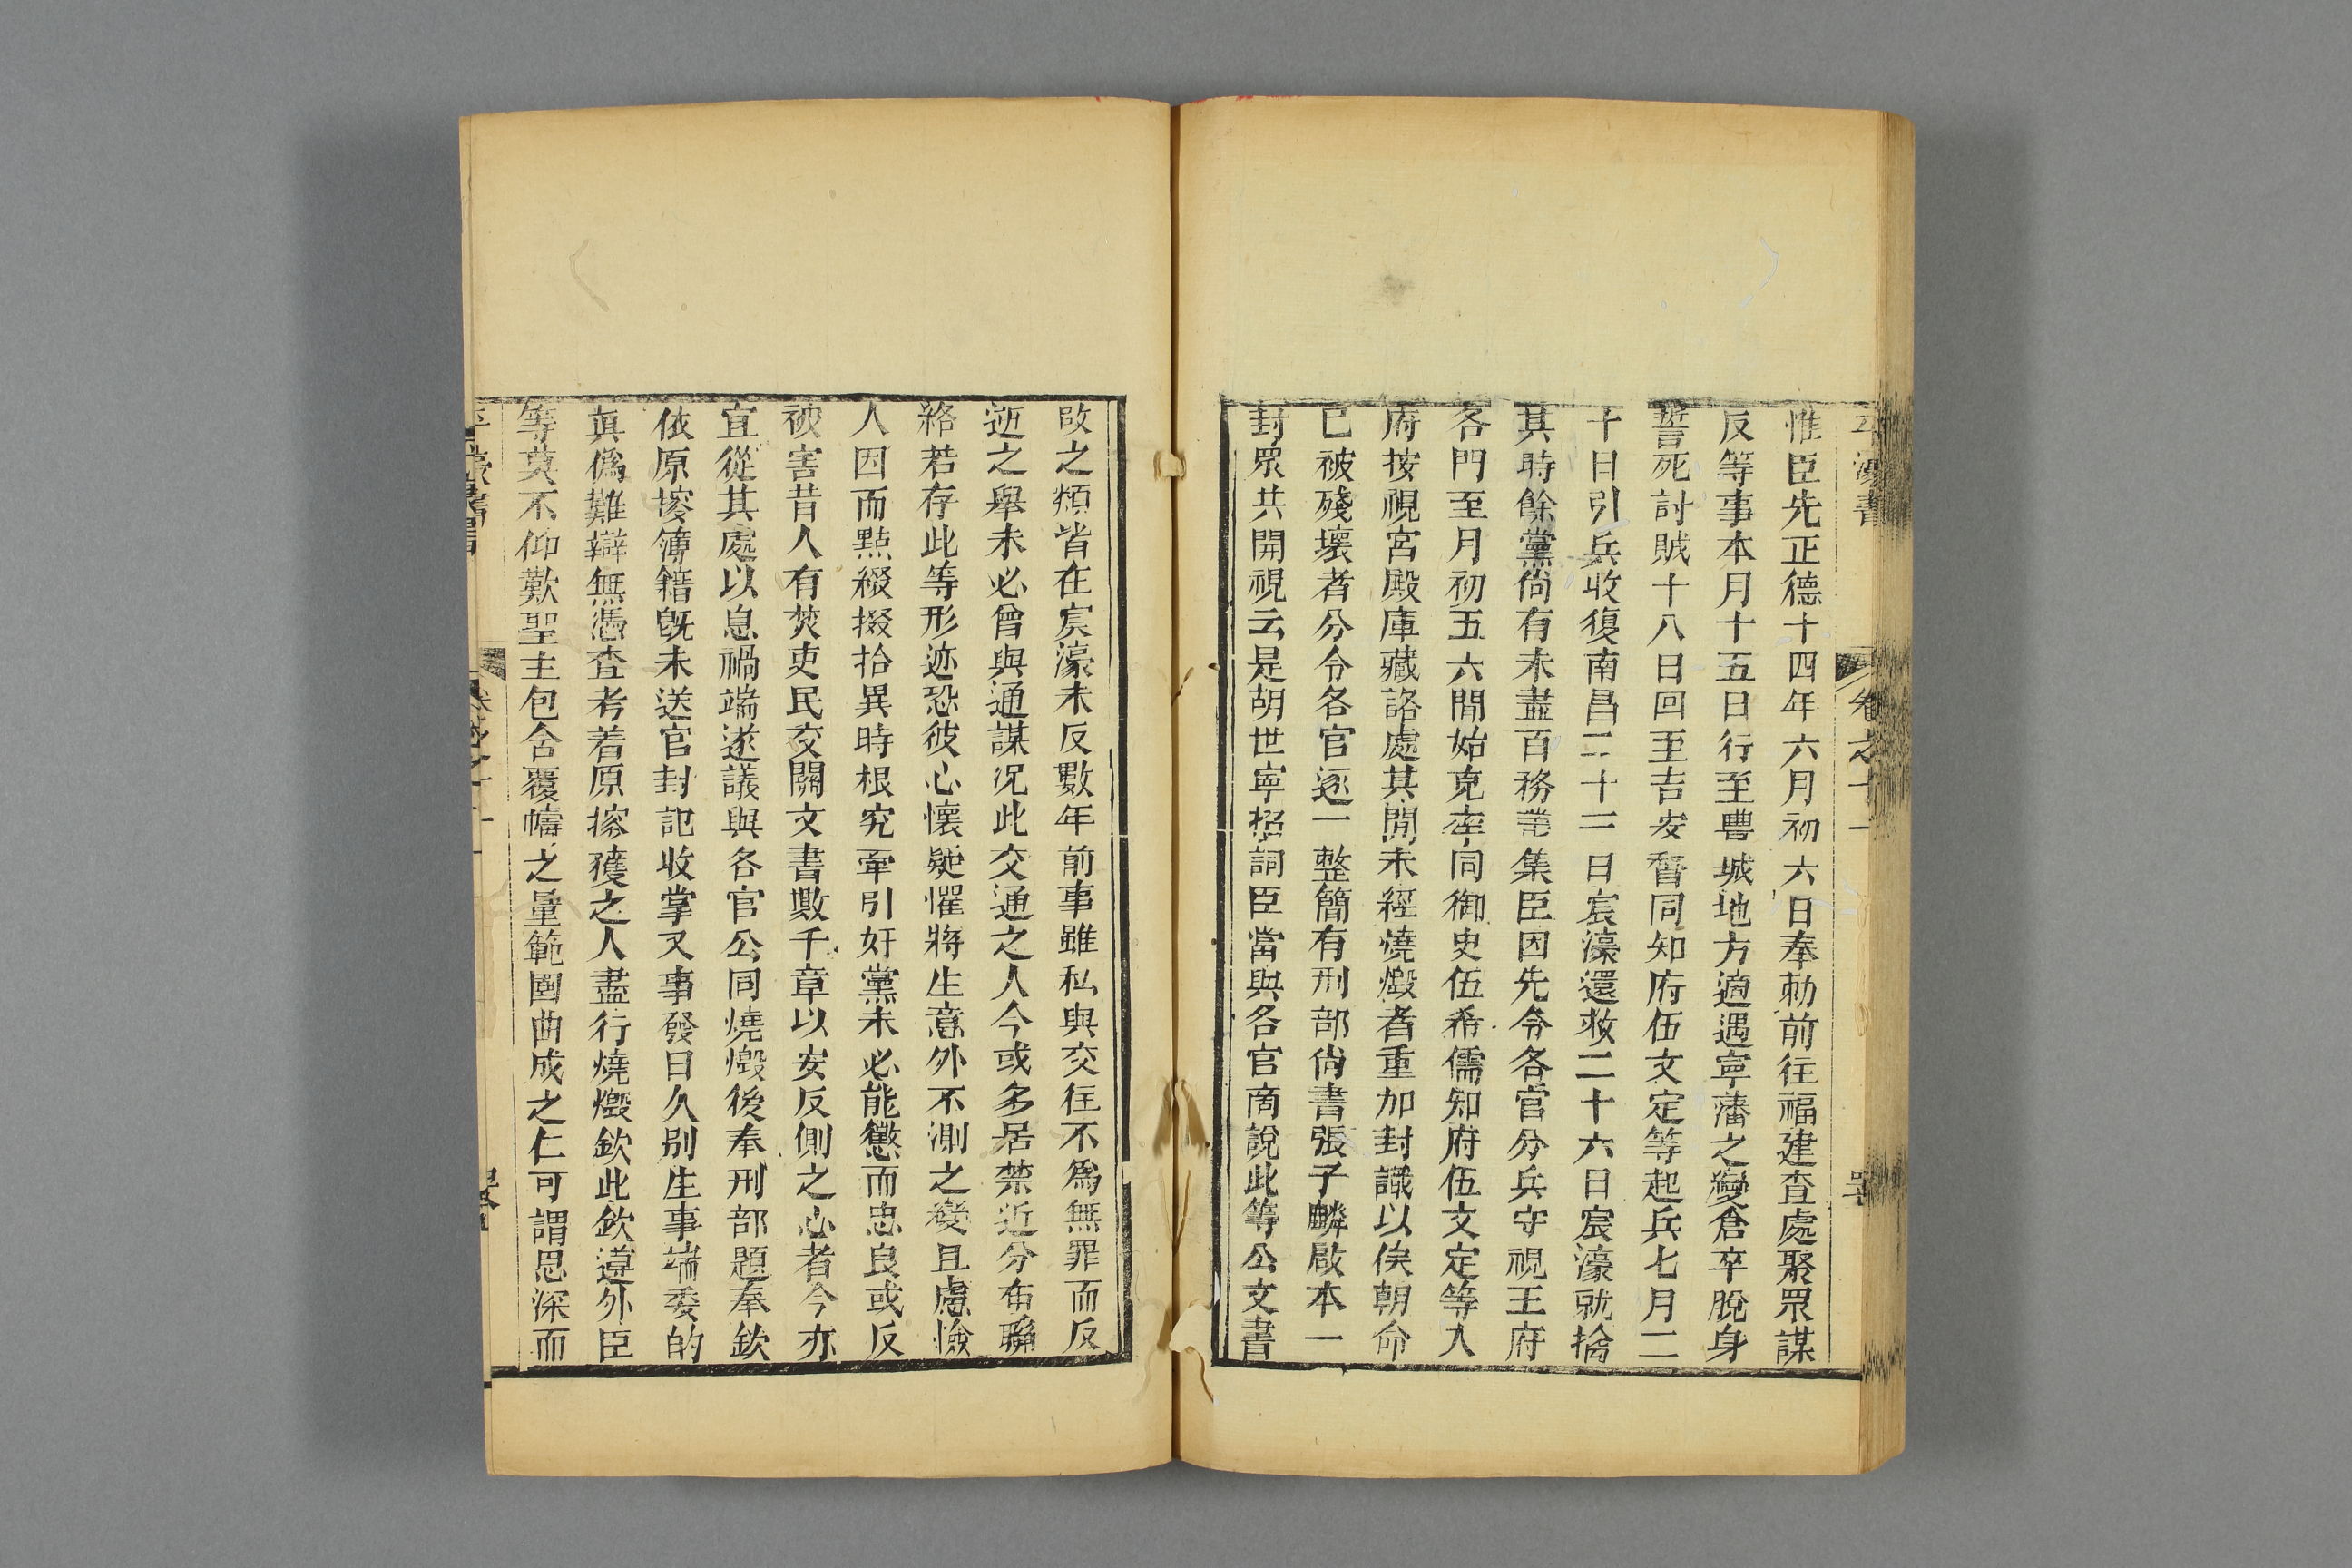 平濠書
卷之十一
惟臣先正德十四年六月初六日奉勅前往福建査處聚眾謀
反等事本月十五日行至豊城地方適遇寧藩之變倉卒脫身
誓死討賊十八日回至吉安督同知府伍文定等起兵七月二
十日引兵收復南昌二十三日宸濠還救二十六日宸濠就擒
其時餘黨尙有未盡百務叢集臣因先令各官分兵守視王府
各門至月初五六間始克率同御史伍希儒知府伍文定等入
府按視宮殿庫藏諸處其間未經燒燬者重加封識以俟朝命
已被殘壞者分令各官逐一整簡有刑部尙書張子麟啟本一
封眾共開視云是胡世寧招詞臣當與各官商說此等公文書
啟之類皆在宸濠未反數年前事雖私與交往不爲無罪而反
逆之舉未必曾與通謀况此交通之人今或多居禁近分布聯
絡若存此等形迹恐彼心懷疑懼將生意外不測之變且慮憸
人因而點綴掇拾異時根究牽引奸黨未必能懲而忠良或反
被害昔人有焚吏民交關文書數千章以安反側之心者今亦
宜從其處以息禍端遂議與各官公同燒燬後奉刑部題奉欽
依原搜簿籍旣未送官封記收掌又事發日久別生事端委的
眞僞難辯無憑査考着原搜獲之人盡行燒燬欽此欽遵外臣
等莫不仰歎聖主包含覆幬之量範圍曲成之仁可謂思深而
平濠書
卷之十一